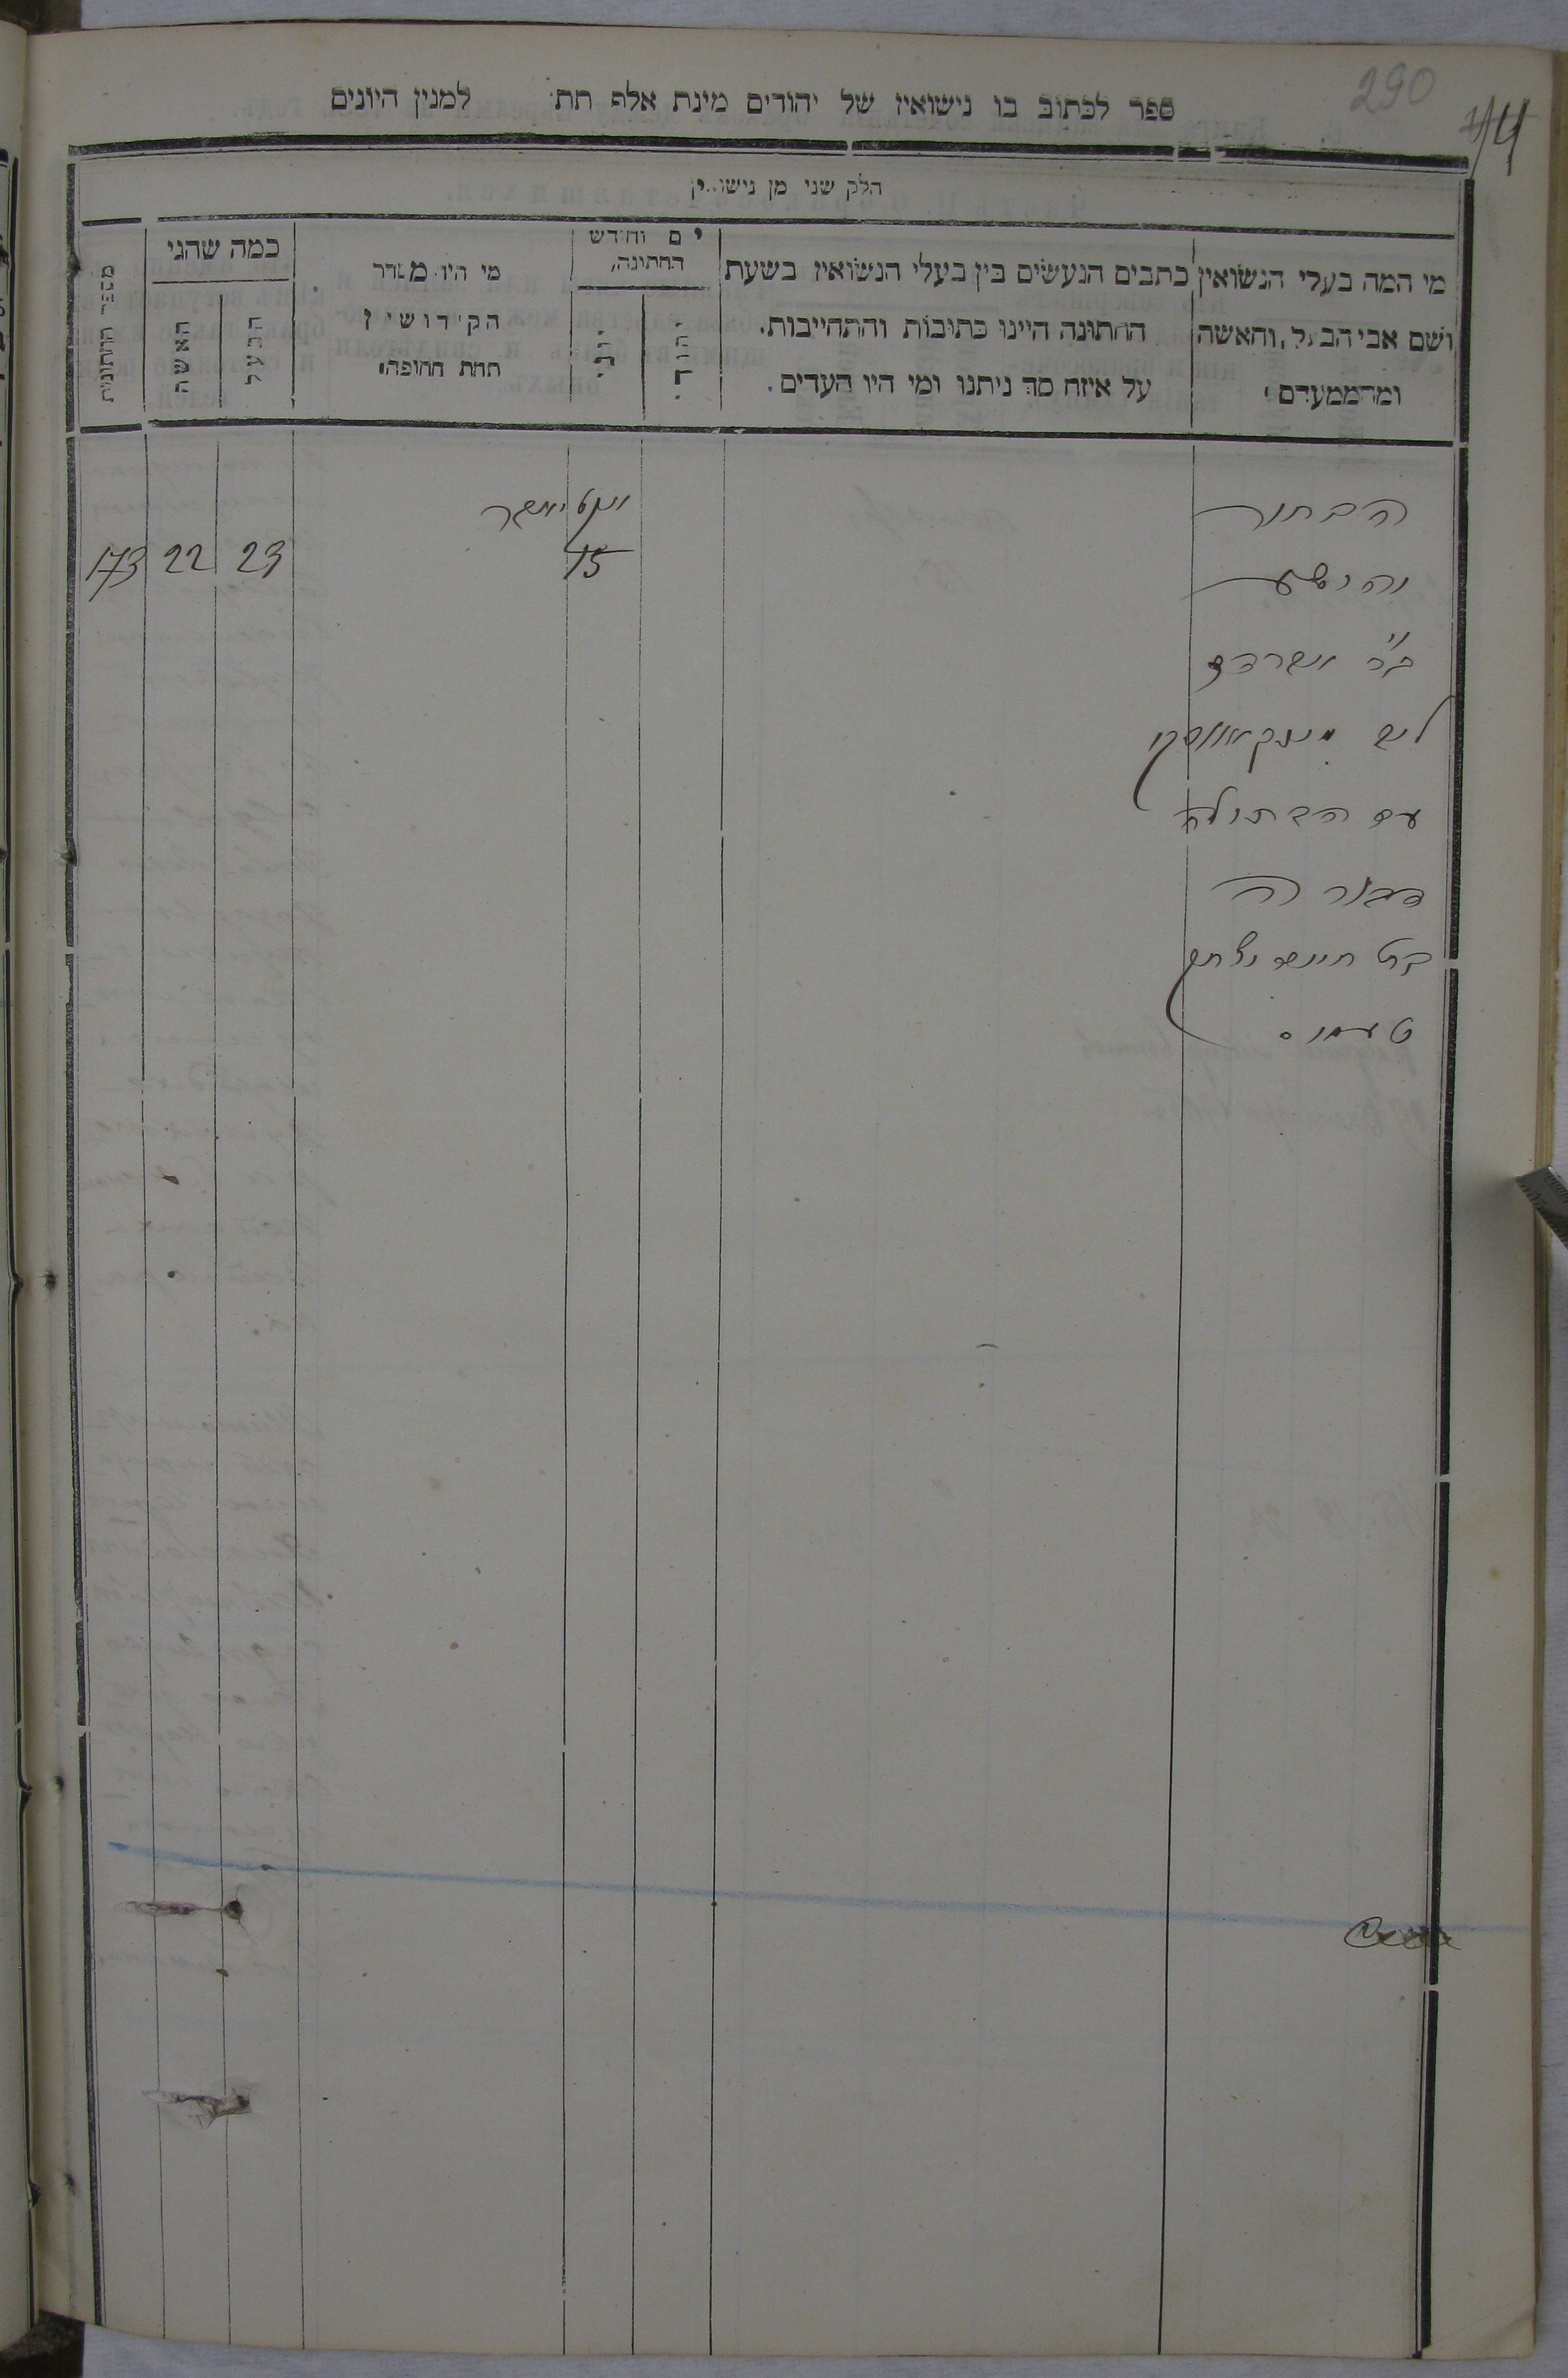 290
ספר לכתוב בו נישואין של יהודים מינת אלפ תת׳ למנין היונים
הלק שני מן נישואין
מי המה בעלי הנשואין
ושם אבי הבעל, והאשה
ומהממעדם
כתבים הנעשים בין בעלי הנשואין בשעת
החתונה היינו כתובות והתחייבות.
על איזה סך ניתנו ומי היו העדים.
יום וחודש
החתונה,
מי היו מסדר
הקידושין
תחת החופה
כמה שהגי
הבעל
האשה
מספר החתונות
הבחור
יהושע
ב״ר
עם הבתולה
דבורה
בת חיים יצחק
אקטיאבר
15
23
22
173